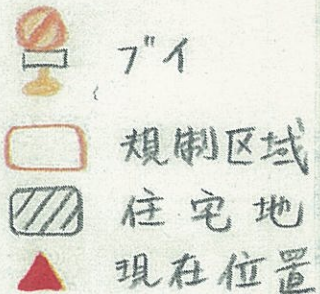 ブイ
規制区域
住宅地
現在位置